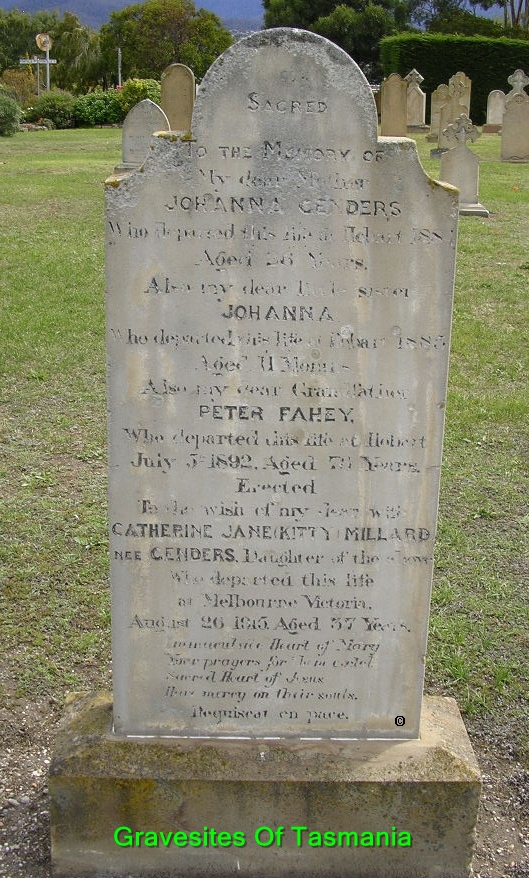 SACRED
TO THE MEMORY OF
My dear Mother
JOHANNA GENDERS
Who departed this life at Hobart
Aged 26 Years.
Also my dear little sister
JOHANNA
Who departed this life at Hobart 1885
Aged 11 Months
Also my dear Grandfather
PETER FAHEY,
Who departed this life at Hobart
July 5th 1892. Aged Years.
Erected
To the wish of my dear wife
CATHERINE JANE (KITTY) MILLARD
NEE GENDERS. Daughter of the above
Who departed this life
at Melbourne Victoria.
August 26 1915. Aged 37 Years.
Immaculate Heart of Mary
Your prayers for them extol
Sacred Heart of Jesus
Have mercy on their souls.
Requiscat en pace.
©
Gravesites Of Tasmania